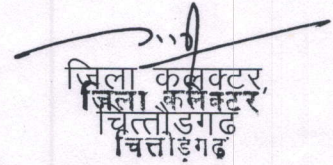 जिला कलक्टर,
जिला कलेक्टर
चित्तौड़गढ
चित्तौड़गढ़